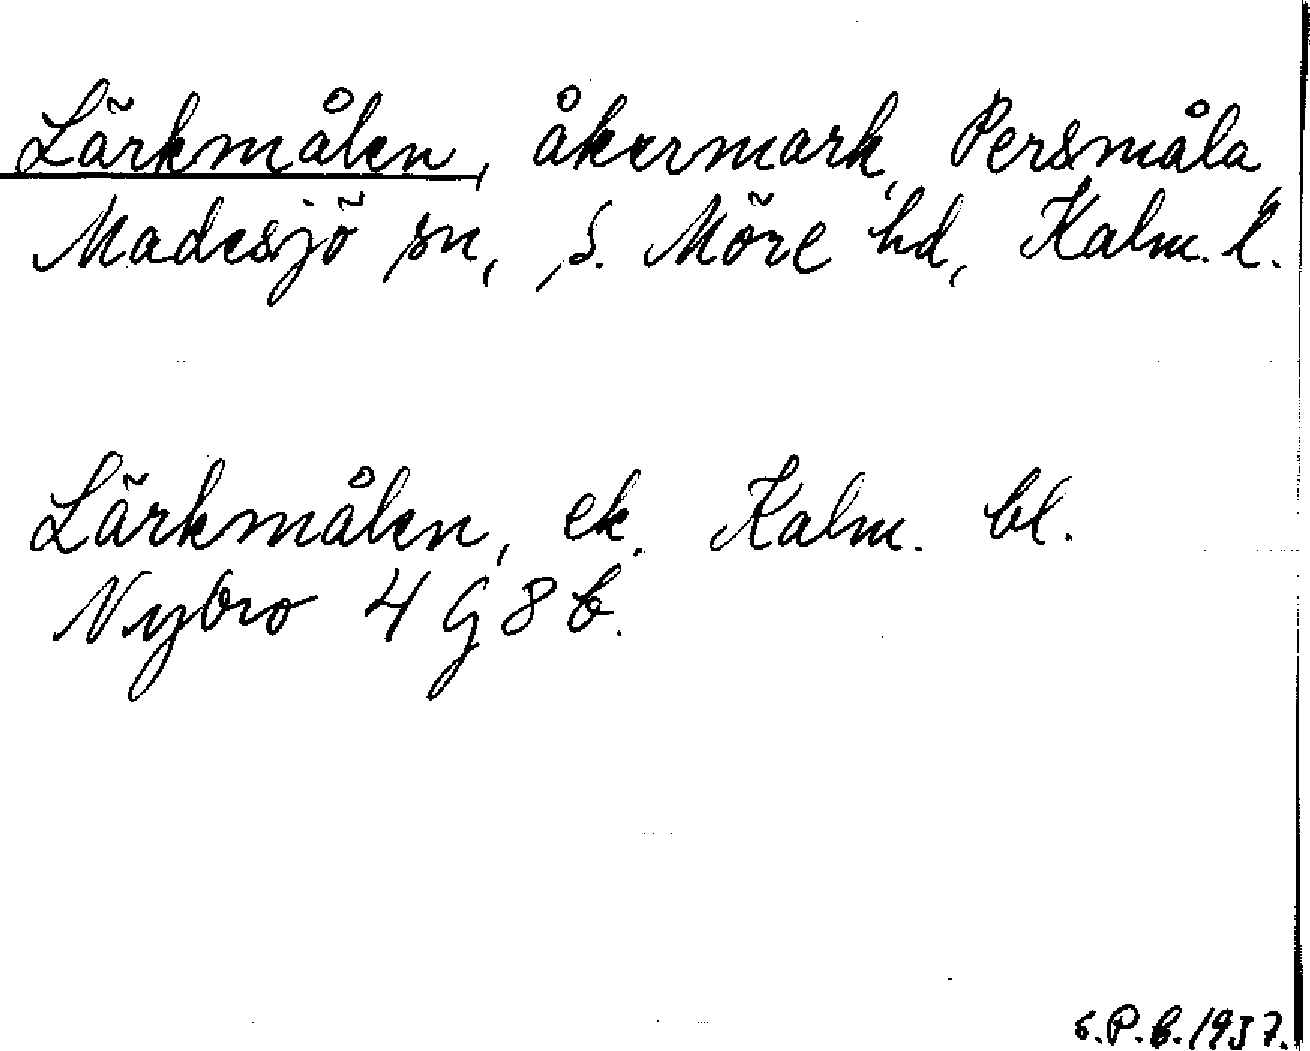 Lärkmålen, åkermark, Persmåla,
Madesjö sn, S. Möre hd, Kalm. l.
Lärkmålen, ek. Kalm. bl.
Nybro 4 G 8 b.
S.P.B. 1957.